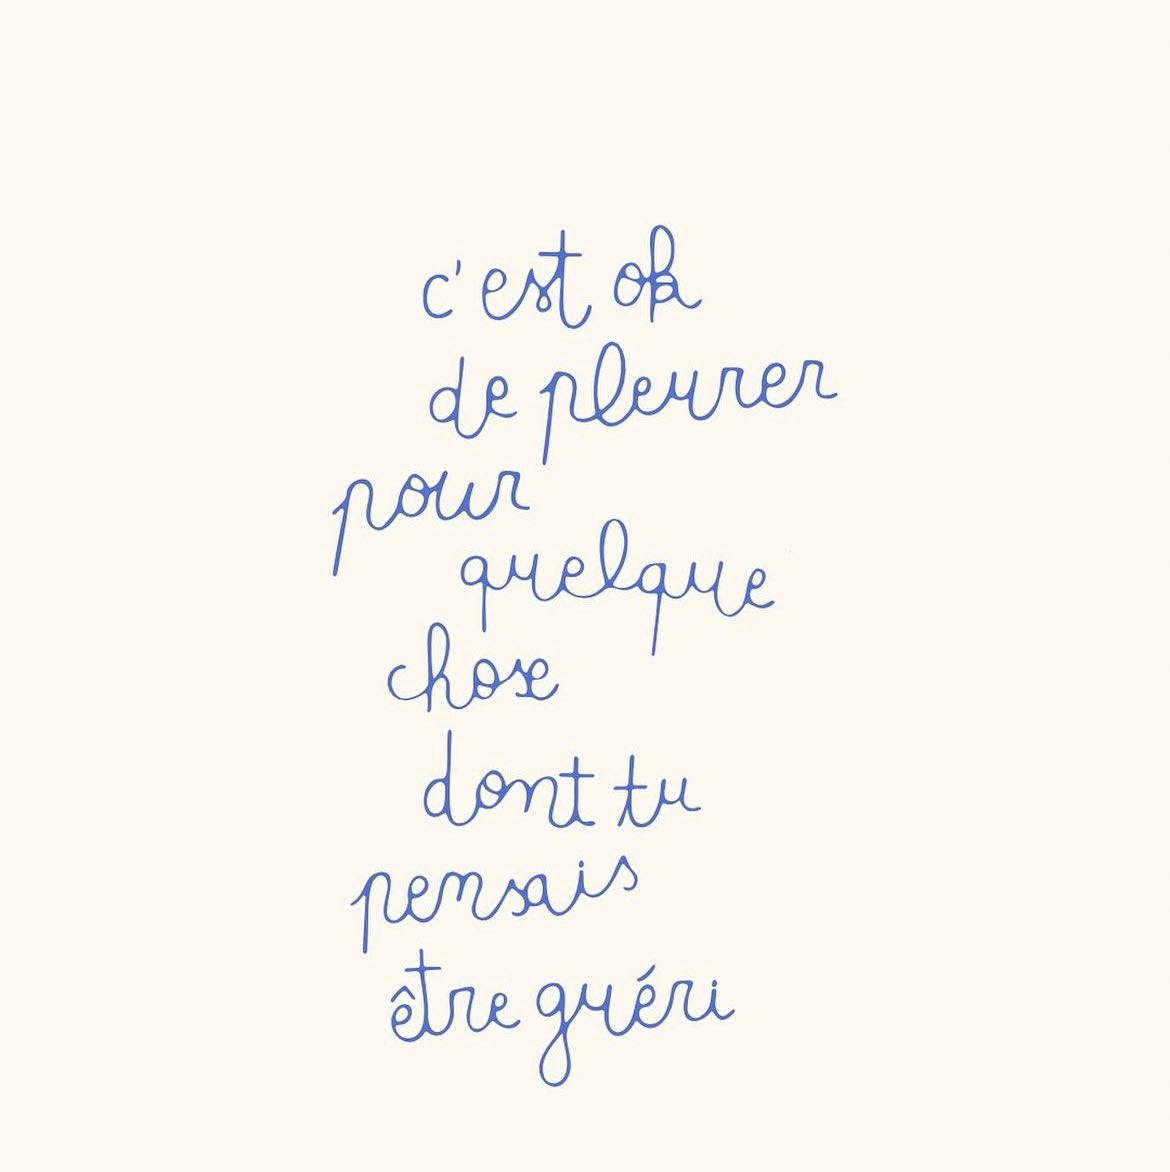 c'est ok
de pleurer
pour
quelque
chose
dont tu
pensais
être guéri